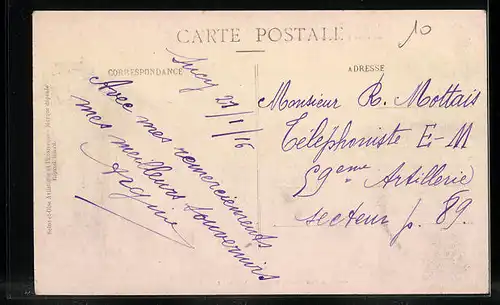 CARTE POSTALE
10
CORRESPONDANCE
ADRESSE
Sucy
21/1/16
Avec mes remerciements
mes meilleurs souvenirs
Monsieur R. Mottais
Téléphoniste E-M
59eme Artillerie
secteur p. 89.